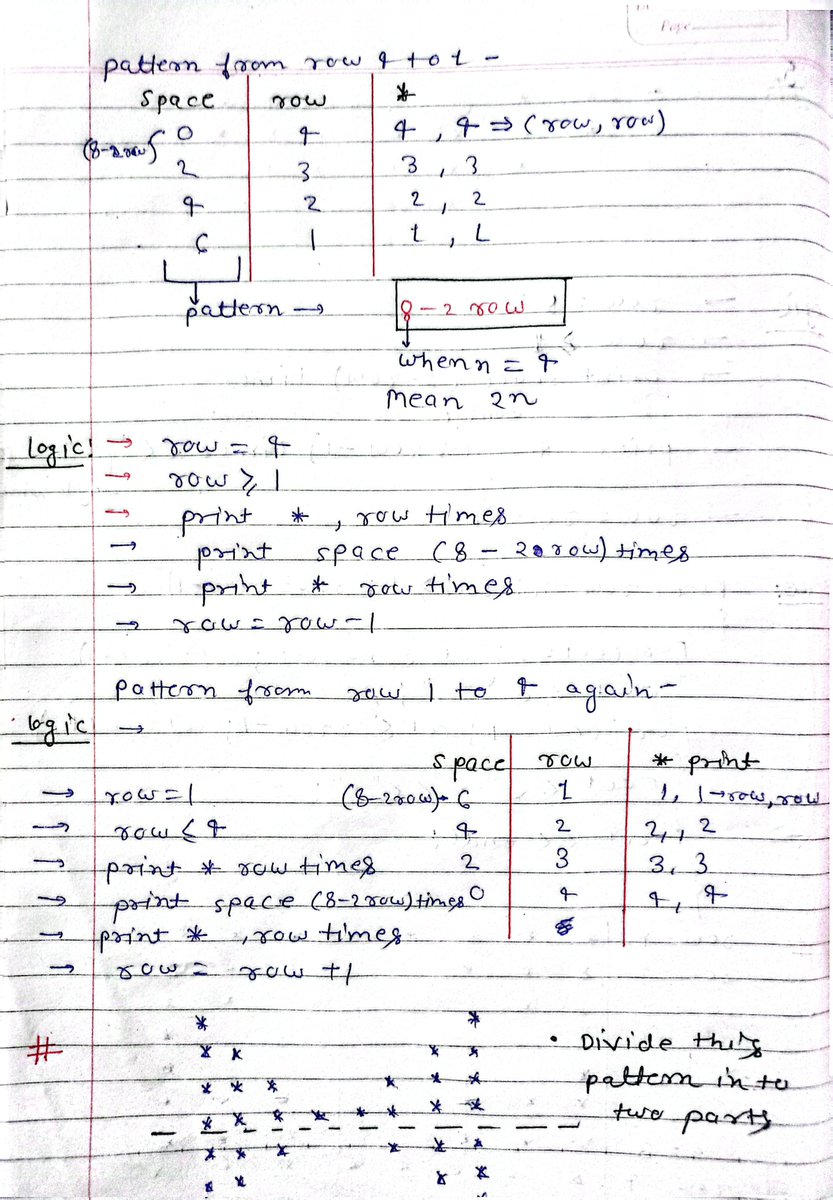 Page
pattern from row 4 to 1 -
space row *
(8-2row) 0 4 4 , 4 ⇒ (row, row)
2 3 3 , 3
4 2 2 , 2
6 1 1 , 1
pattern → 8 - 2 row
when n = 4
Mean 2n
logic! → row = 4
→ row ≥ 1
→ print * , row times
→ print space (8 - 2 row) times
→ print * row times
→ row = row - 1
Pattern from row 1 to 4 again -
logic →
space row * print
→ row = 1 (8-2row) 6 1 1, 1 → row, row
→ row ≤ 4 4 2 2, , 2
→ print * row times 2 3 3, 3
→ print space (8-2row) times 0 4 4, 4
→ print * , row times
→ row = row + 1
* *
# * * * * • Divide this
* * * * * * pattern in to
* * * * * * * * two parts
* * * * * *
* * * *